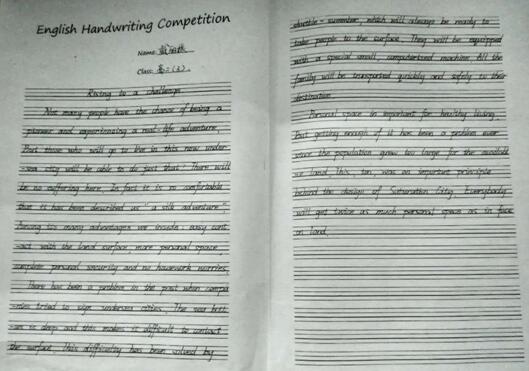 English Handwriting Competition
Name:
Class: 高二(3)
Rising to a challenge
Not many people have the chance of being a
pioneer and experiencing a real-life adventure.
But those who will go to live in this new under-
-sea city will be able to do just that. There will
be no suffering here. In fact it is so comfortable
that it has been described as "a silk adventure".
Among its many advantages are inside: easy cont
-act with the land surface, more personal space,
complete personal security and no housework worries.
There has been a problem in the past when compa
-nies tried to undersea cities. The sea bott
-om is deep and this makes it difficult to contact
the surface. This difficulty has been solved by
shuttle-, which will always be ready to
take people to the surface. They will be equipped
with a special small, computerized machine. All the
family will be transported quickly and safely to their
destination.
Personal space is important for healthy living.
But getting enough of it has been a problem ever
since the population grew too large for the available
land. This, too, was an important principle
behind the design of City. Everybody
will get twice as much personal space as in
on land.